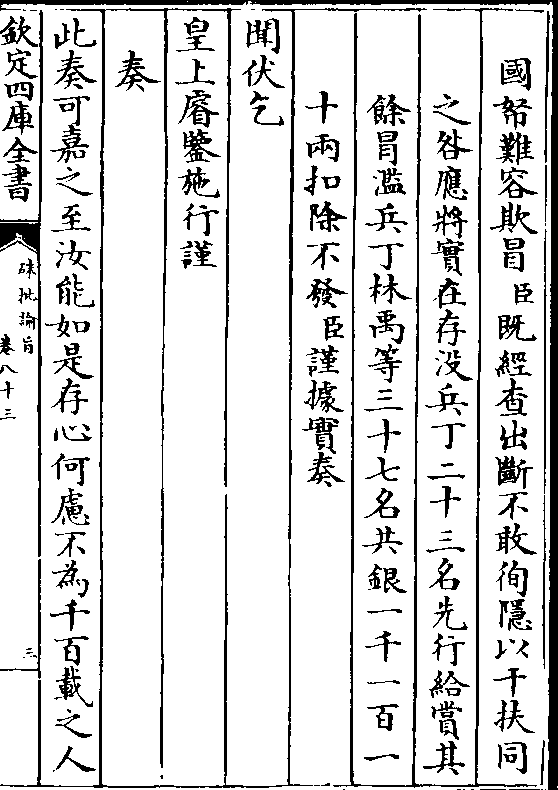 國帑難容欺冒臣既經查出斷不敢徇隱以干扶同
之咎應將實在存没兵丁二十三名先行給賞其
餘冒濫兵丁林禹等三十七名共銀一千一百一
十兩扣除不發臣謹據實奏
聞伏乞
皇上睿鑒施行謹
奏
此奏可嘉之至汝能如是存心何慮不為千百載之人
欽定四庫全書
硃批諭旨
卷八十三
三